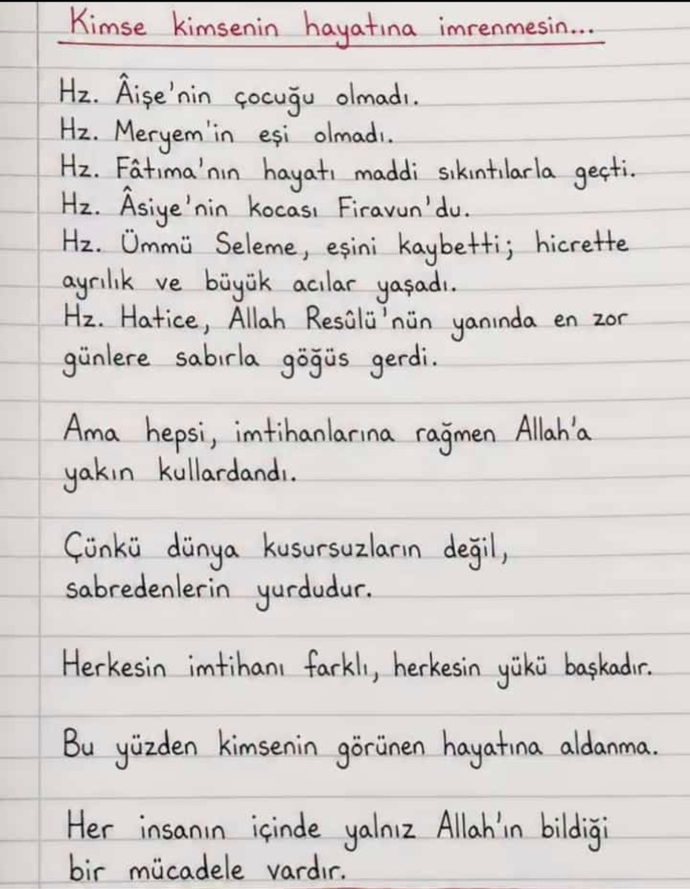 Kimse kimsenin hayatına imrenmesin...
Hz. Âişe'nin çocuğu olmadı.
Hz. Meryem'in eşi olmadı.
Hz. Fâtıma'nın hayatı maddi sıkıntılarla geçti.
Hz. Âsiye'nin kocası Firavun'du.
Hz. Ümmü Seleme, eşini kaybetti; hicrette
ayrılık ve büyük acılar yaşadı.
Hz. Hatice, Allah Resûlü'nün yanında en zor
günlere sabırla göğüs gerdi.
Ama hepsi, imtihanlarına rağmen Allah'a
yakın kullardandı.
Çünkü dünya kusursuzların değil,
sabredenlerin yurdudur.
Herkesin imtihanı farklı, herkesin yükü başkadır.
Bu yüzden kimsenin görünen hayatına aldanma.
Her insanın içinde yalnız Allah'ın bildiği
bir mücadele vardır.